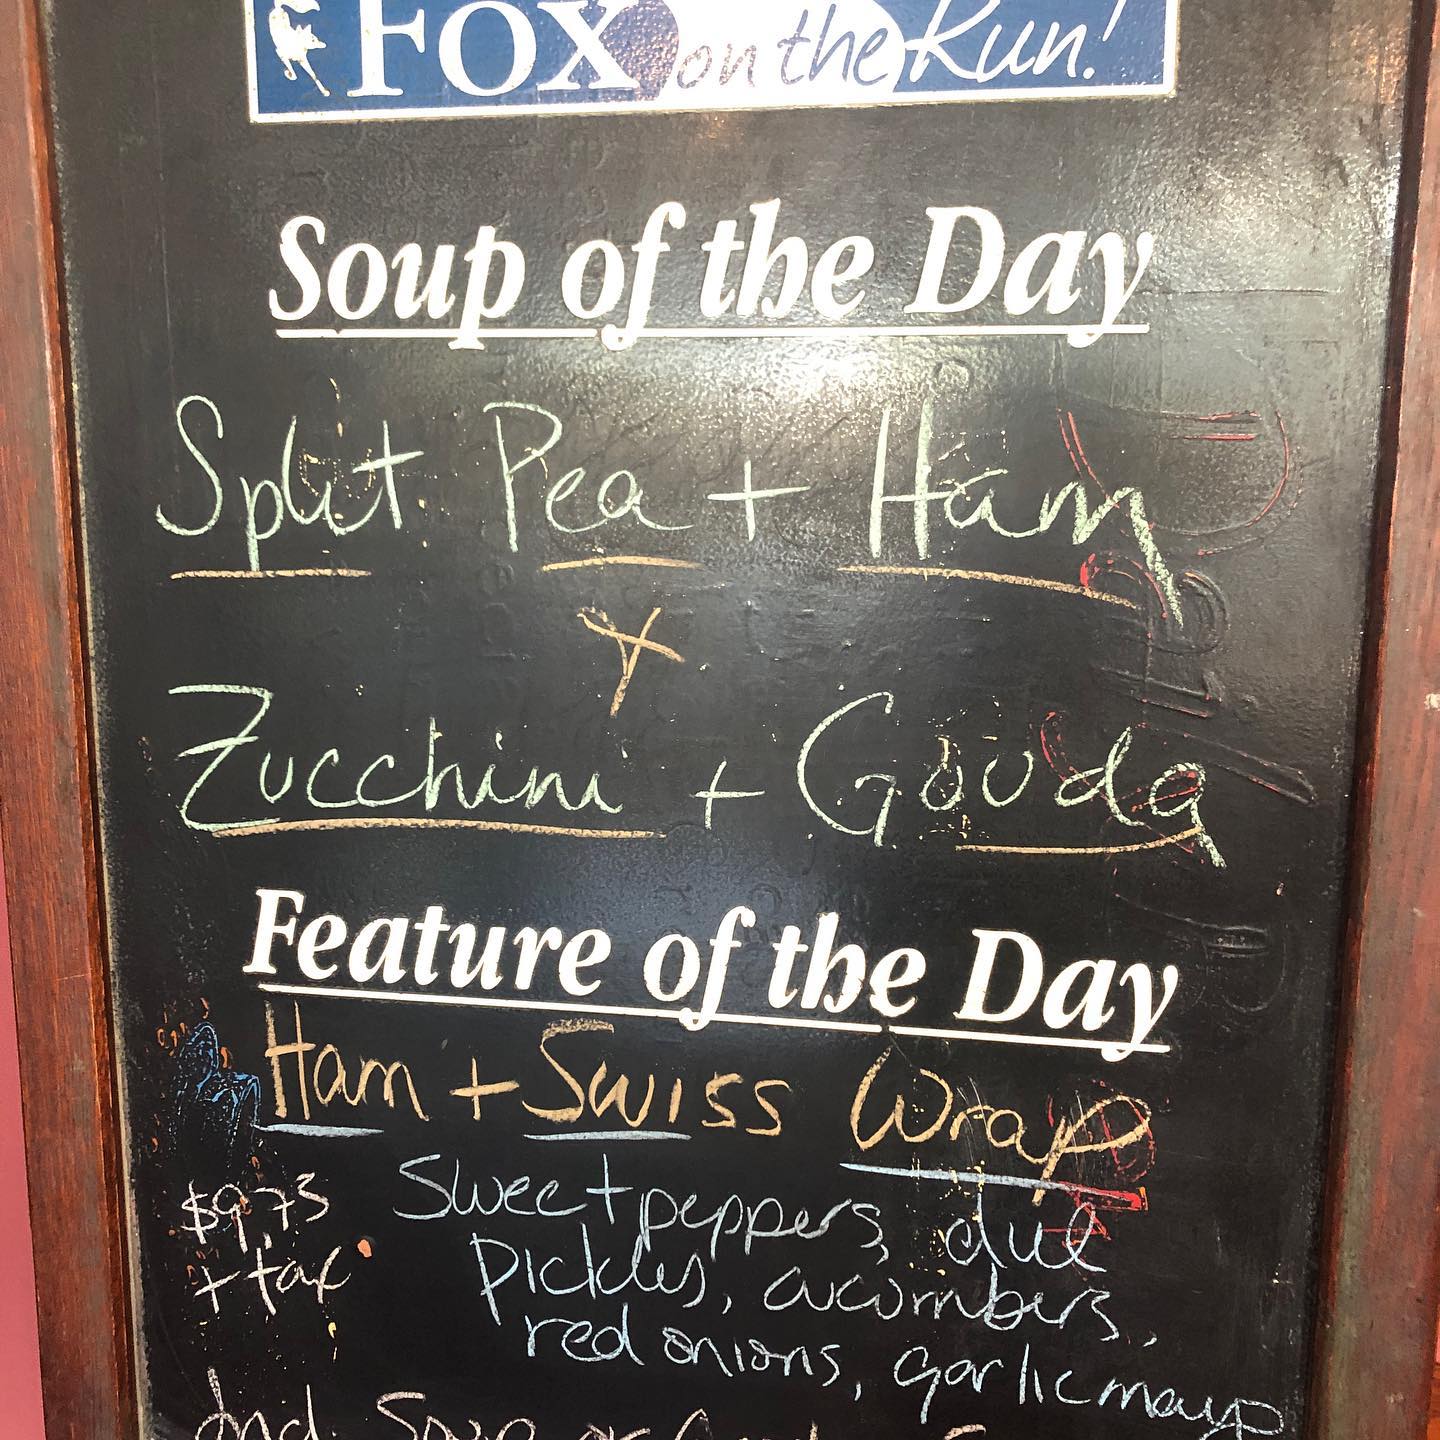 Fox on the Run!
Soup of the Day
Split Pea + Ham
+
Zucchini + Gouda
Feature of the Day
Ham + Swiss Wrap
$9.75
+ tax
Sweet peppers, dill
pickles, cucumbers,
red onions, garlic mayo
Incl. Soup or